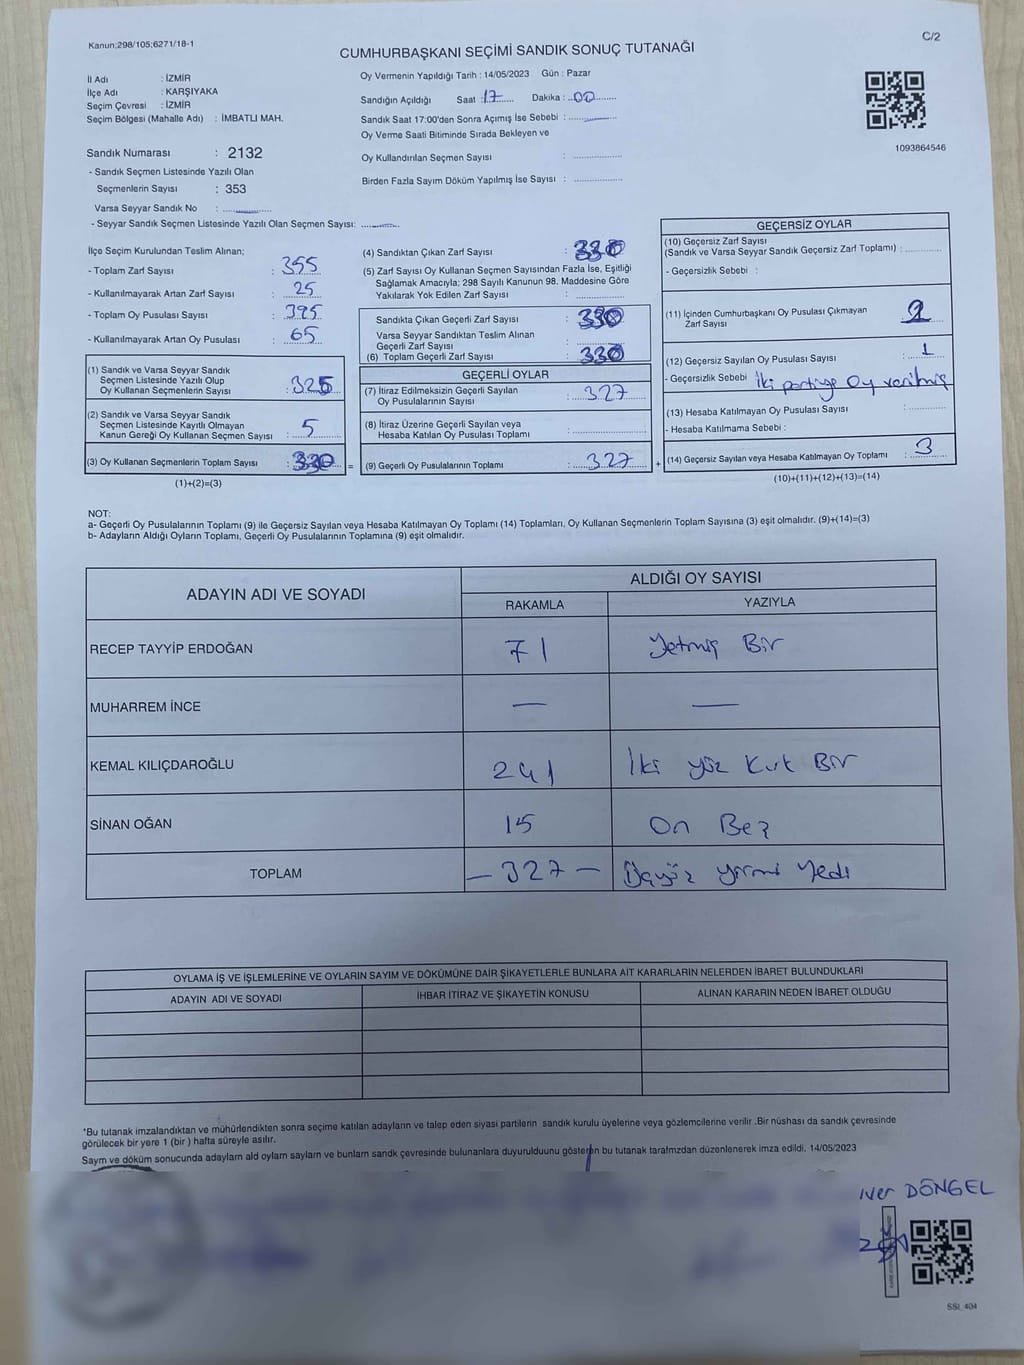 Kanun;298/105;6271/18-1
C/2
CUMHURBAŞKANI SEÇİMİ SANDIK SONUÇ TUTANAĞI
İl Adı : İZMİR
İlçe Adı : KARŞIYAKA
Seçim Çevresi : İZMİR
Seçim Bölgesi (Mahalle Adı) : İMBATLI MAH.
Oy Vermenin Yapıldığı Tarih : 14/05/2023 Gün : Pazar
Sandığın Açıldığı Saat : 17 Dakika : 00
Sandık Saat 17:00'den Sonra Açımış İse Sebebi :
Oy Verme Saati Bitiminde Sırada Bekleyen ve
Oy Kullandırılan Seçmen Sayısı :
Birden Fazla Sayım Döküm Yapılmış İse Sayısı :
1093864546
Sandık Numarası : 2132
- Sandık Seçmen Listesinde Yazılı Olan
Seçmenlerin Sayısı : 353
Varsa Seyyar Sandık No :
- Seyyar Sandık Seçmen Listesinde Yazılı Olan Seçmen Sayısı:
İlçe Seçim Kurulundan Teslim Alınan;
- Toplam Zarf Sayısı : 355
- Kullanılmayarak Artan Zarf Sayısı : 25
- Toplam Oy Pusulası Sayısı : 395
- Kullanılmayarak Artan Oy Pusulası : 65
(1) Sandık ve Varsa Seyyar Sandık
Seçmen Listesinde Yazılı Olup
Oy Kullanan Seçmenlerin Sayısı : 325
(2) Sandık ve Varsa Seyyar Sandık
Seçmen Listesinde Kayıtlı Olmayan
Kanun Gereği Oy Kullanan Seçmen Sayısı : 5
(3) Oy Kullanan Seçmenlerin Toplam Sayısı : 330 =
(1)+(2)=(3)
(4) Sandıktan Çıkan Zarf Sayısı : 330
(5) Zarf Sayısı Oy Kullanan Seçmen Sayısından Fazla İse, Eşitliği
Sağlamak Amacıyla; 298 Sayılı Kanunun 98. Maddesine Göre
Yakılarak Yok Edilen Zarf Sayısı :
Sandıkta Çıkan Geçerli Zarf Sayısı : 330
Varsa Seyyar Sandıktan Teslim Alınan
Geçerli Zarf Sayısı :
(6) Toplam Geçerli Zarf Sayısı : 330
GEÇERLİ OYLAR
(7) İtiraz Edilmeksizin Geçerli Sayılan
Oy Pusulalarının Sayısı : 327
(8) İtiraz Üzerine Geçerli Sayılan veya
Hesaba Katılan Oy Pusulası Toplamı :
(9) Geçerli Oy Pusulalarının Toplamı : 327 +
GEÇERSİZ OYLAR
(10) Geçersiz Zarf Sayısı
(Sandık ve Varsa Seyyar Sandık Geçersiz Zarf Toplamı) :
- Geçersizlik Sebebi :
(11) İçinden Cumhurbaşkanı Oy Pusulası Çıkmayan
Zarf Sayısı : 2
(12) Geçersiz Sayılan Oy Pusulası Sayısı : 1
- Geçersizlik Sebebi : İki partiye Oy verilmiş
(13) Hesaba Katılmayan Oy Pusulası Sayısı :
- Hesaba Katılmama Sebebi :
(14) Geçersiz Sayılan veya Hesaba Katılmayan Oy Toplamı : 3
(10)+(11)+(12)+(13)=(14)
NOT:
a- Geçerli Oy Pusulalarının Toplamı (9) ile Geçersiz Sayılan veya Hesaba Katılmayan Oy Toplamı (14) Toplamları, Oy Kullanan Seçmenlerin Toplam Sayısına (3) eşit olmalıdır. (9)+(14)=(3)
b- Adayların Aldığı Oyların Toplamı, Geçerli Oy Pusulalarının Toplamına (9) eşit olmalıdır.
ADAYIN ADI VE SOYADI ALDIĞI OY SAYISI
RAKAMLA YAZIYLA
RECEP TAYYİP ERDOĞAN 71 Yetmiş Bir
MUHARREM İNCE — —
KEMAL KILIÇDAROĞLU 241 İki yüz Kırk Bir
SİNAN OĞAN 15 On Beş
TOPLAM — 327 — Üçyüz yirmi Yedi
OYLAMA İŞ VE İŞLEMLERİNE VE OYLARIN SAYIM VE DÖKÜMÜNE DAİR ŞİKAYETLERLE BUNLARA AİT KARARLARIN NELERDEN İBARET BULUNDUKLARI
ADAYIN ADI VE SOYADI İHBAR İTİRAZ VE ŞİKAYETİN KONUSU ALINAN KARARIN NEDEN İBARET OLDUĞU
*Bu tutanak imzalandıktan ve mühürlendikten sonra seçime katılan adayların ve talep eden siyasi partilerin sandık kurulu üyelerine veya gözlemcilerine verilir .Bir nüshası da sandık çevresinde
görülecek bir yere 1 (bir ) hafta süreyle asılır.
Sayım ve döküm sonucunda adayların ald oyların sayların ve bunların sandk çevresinde bulunanlara duyurulduunu gösteren bu tutanak tarafmzdan düzenlenerek imza edildi. 14/05/2023
DÖNGEL
SSI_404